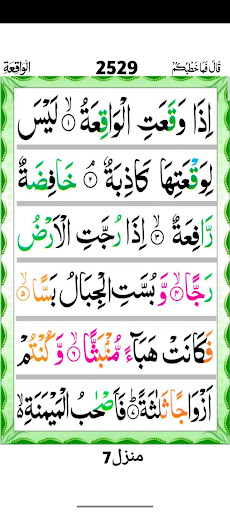 قَالَ فَمَا خَطْبُكُمْ 2529 الواقعة
اِذَا وَقَعَتِ الْوَاقِعَةُ ۙ‏﴿۱﴾ لَيْسَ
لِوَقْعَتِهَا كَاذِبَةٌ ۘ‏﴿۲﴾ خَافِضَةٌ
رَّافِعَةٌ ۙ‏﴿۳﴾ اِذَا رُجَّتِ الْاَرْضُ
رَجًّا ۙ‏﴿۴﴾ وَّ بُسَّتِ الْجِبَالُ بَسًّا ۙ‏﴿۵﴾
فَكَانَتْ هَبَآءً مُّنْۢبَثًّا ۙ‏﴿۶﴾ وَّ كُنْتُمْ
اَزْوَاجًا ثَلٰثَةً ؕ‏﴿۷﴾ فَاَصْحٰبُ الْمَيْمَنَةِ ۙ
منزل7